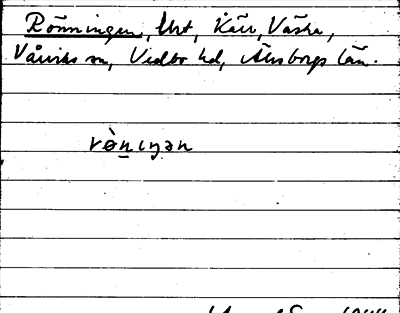 Rönningen, Urt, Kärr, Västra,
Vårviks sn, Vedbo hd, Älvsborgs län.
rò̱nıŋən